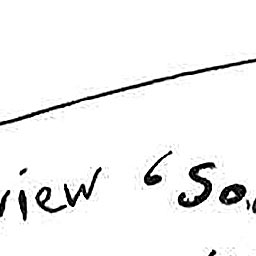 view “So